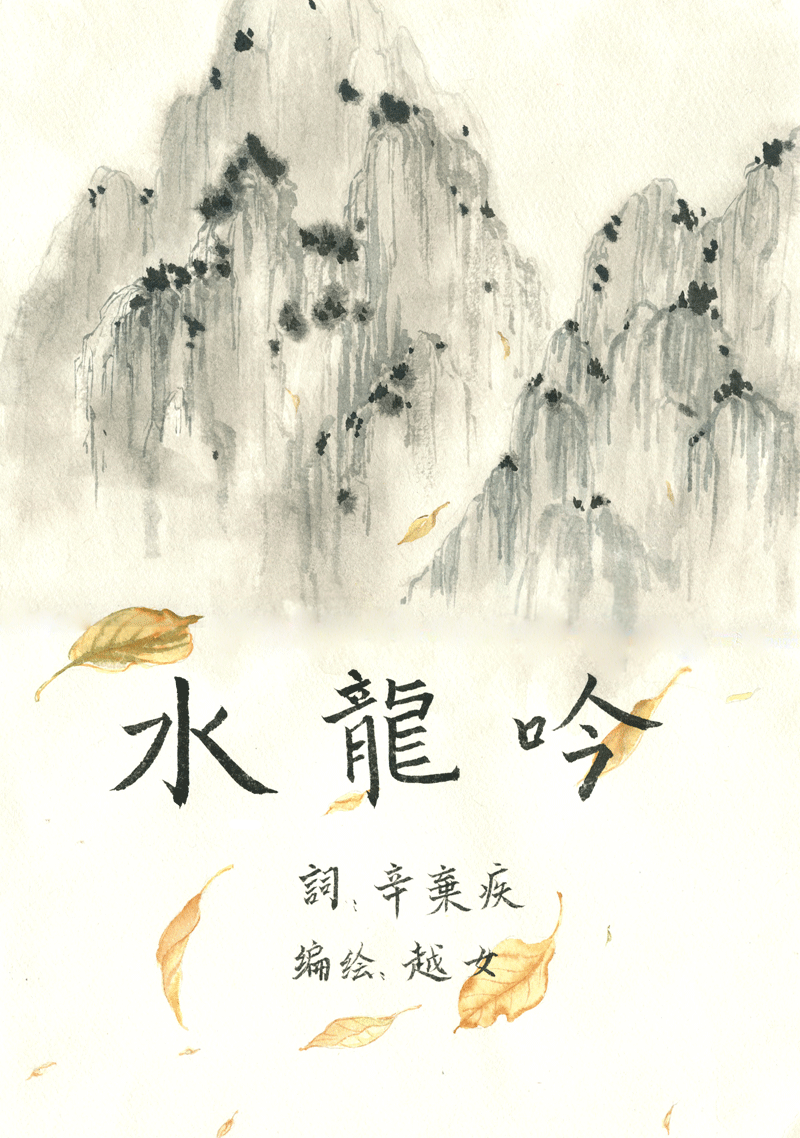 水龍吟
詞：辛棄疾
编绘：越女